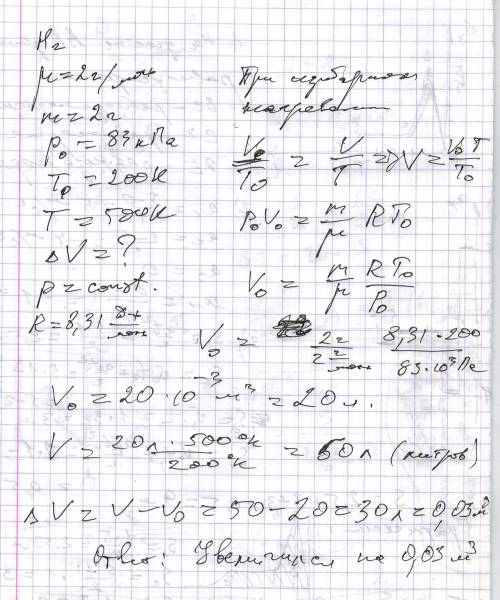 H₂
μ = 2г/моль
m = 2г
p₀ = 83 кПа
T₀ = 200К
T = 500К
ΔV = ?
p = const.
R = 8,31 Дж/моль
При изобарном
нагревании
V₀/T₀ = V/T => V = V₀T/T₀
P₀V₀ = m/μ RT₀
V₀ = m/μ RT₀/P₀
V₀ = 2г/2 г/моль 8,31·200/83·10³Па
V₀ = 20·10⁻³ м³ = 20л.
V = 20л·500°К/200°К = 50л (литров)
ΔV = V - V₀ = 50-20=30л=0,03м³
Ответ: Увеличился на 0,03 м³